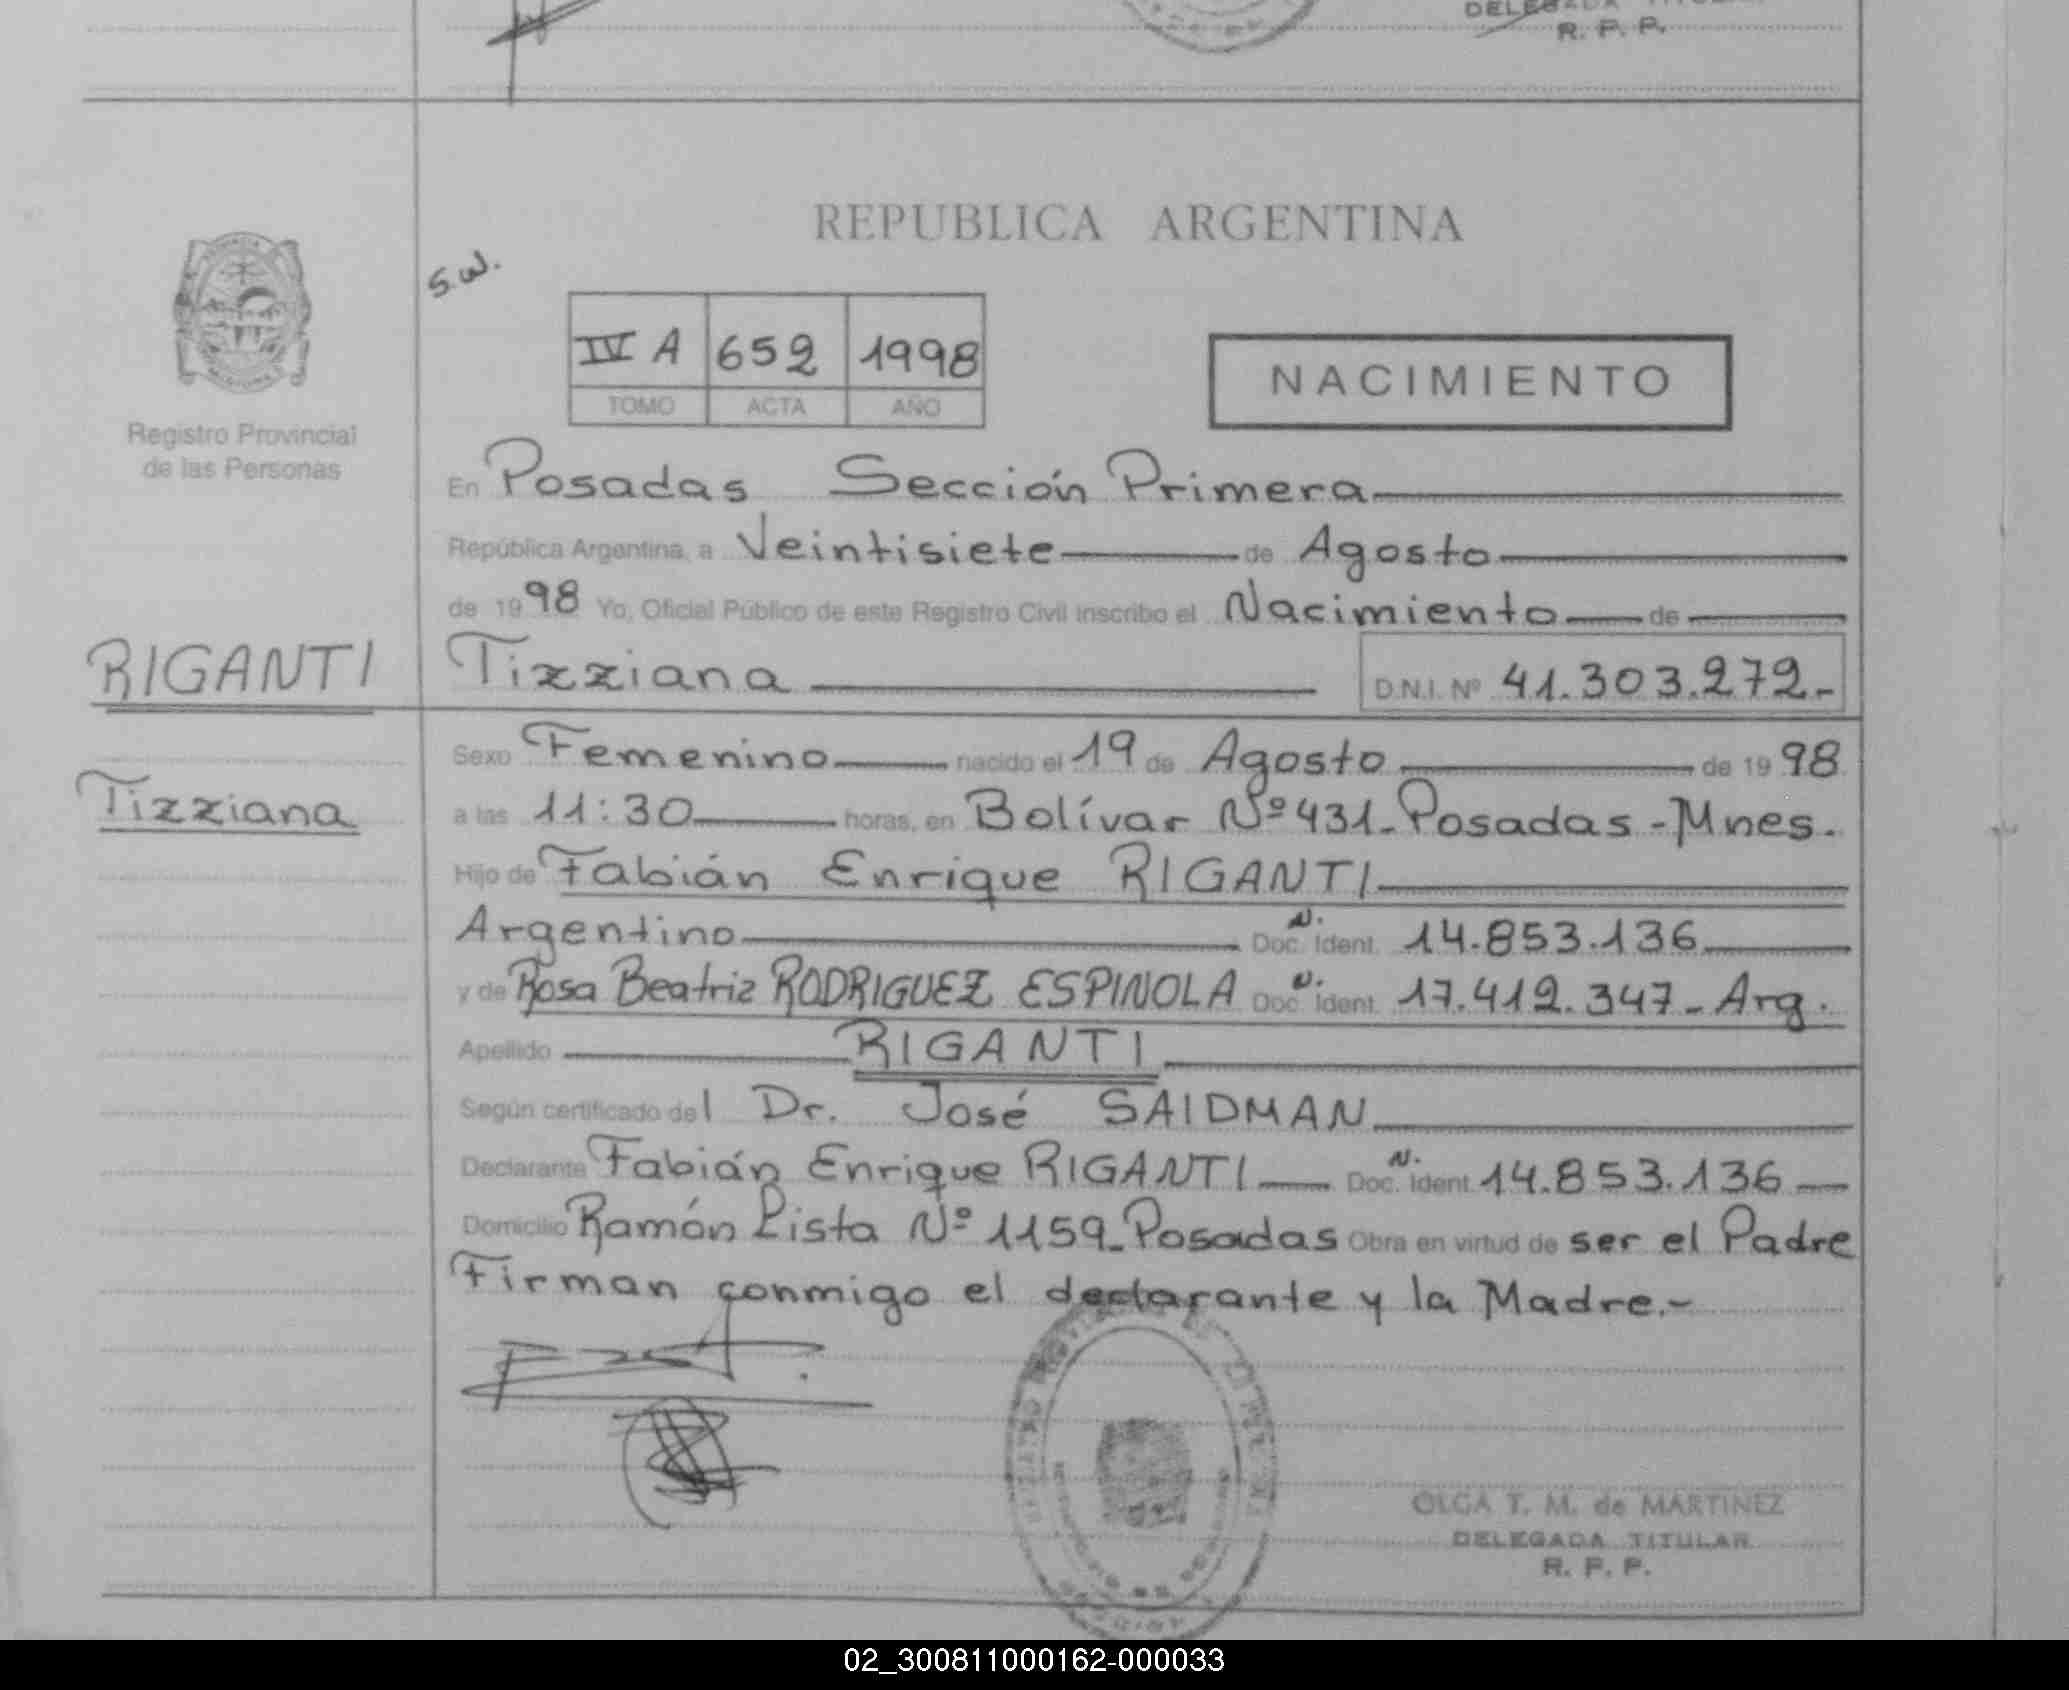 DELEGADA TITULAR
R. P. P.
REPUBLICA ARGENTINA
s.w.
IV A 652 1998
TOMO ACTA AÑO
NACIMIENTO
Registro Provincial
de las Personas
En Posadas Sección Primera
República Argentina, a Veintisiete de Agosto
de 1998 Yo, Oficial Público de este Registro Civil inscribo el Nacimiento de
RIGANTI
Tizziana D.N.I. Nº 41.303.272.-
Sexo Femenino nacido el 19 de Agosto de 1998
Tizziana
a las 11:30 horas, en Bolívar Nº 431-Posadas-Mnes.
Hijo de Fabián Enrique RIGANTI
Argentino Doc. N. Ident. 14.853.136
y de Rosa Beatriz RODRIGUEZ ESPINOLA Doc. N. Ident. 17.412.347- Arg.
Apellido RIGANTI
Según certificado del Dr. José SAIDMAN
Declarante Fabián Enrique RIGANTI Doc. N. Ident. 14.853.136
Domicilio Ramón Lista Nº 1159-Posadas Obra en virtud de ser el Padre
Firman conmigo el declarante y la Madre.-
OLGA T. M. de MARTINEZ
DELEGADA TITULAR
R. P. P.
02_300811000162-000033